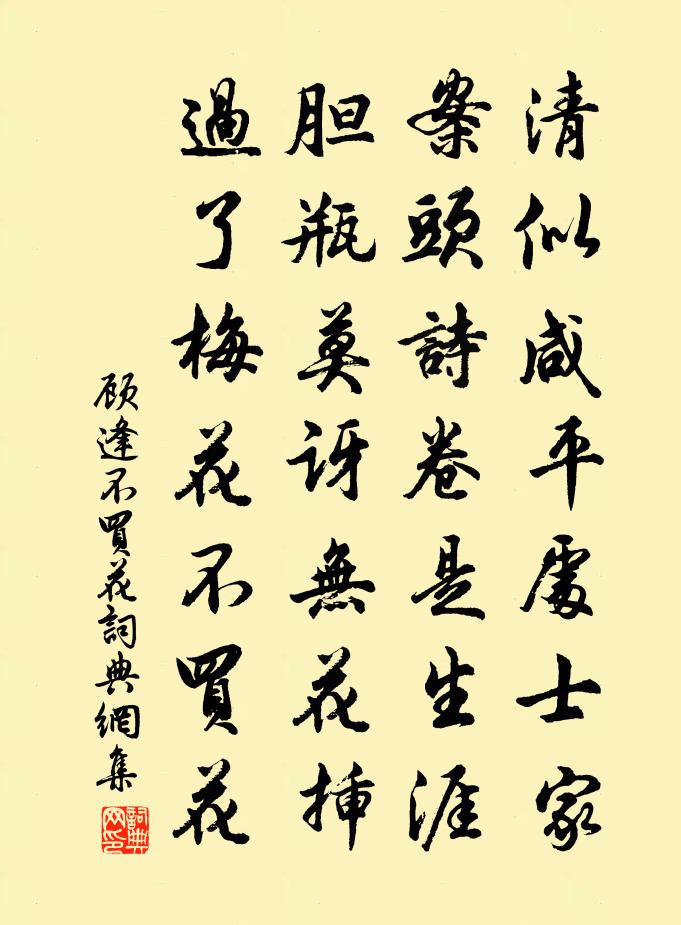 清似咸平處士家
案頭詩卷是生涯
胆瓶莫訝無花挿
過了梅花不買花
顾逢不買花詞典網集
詞典网印